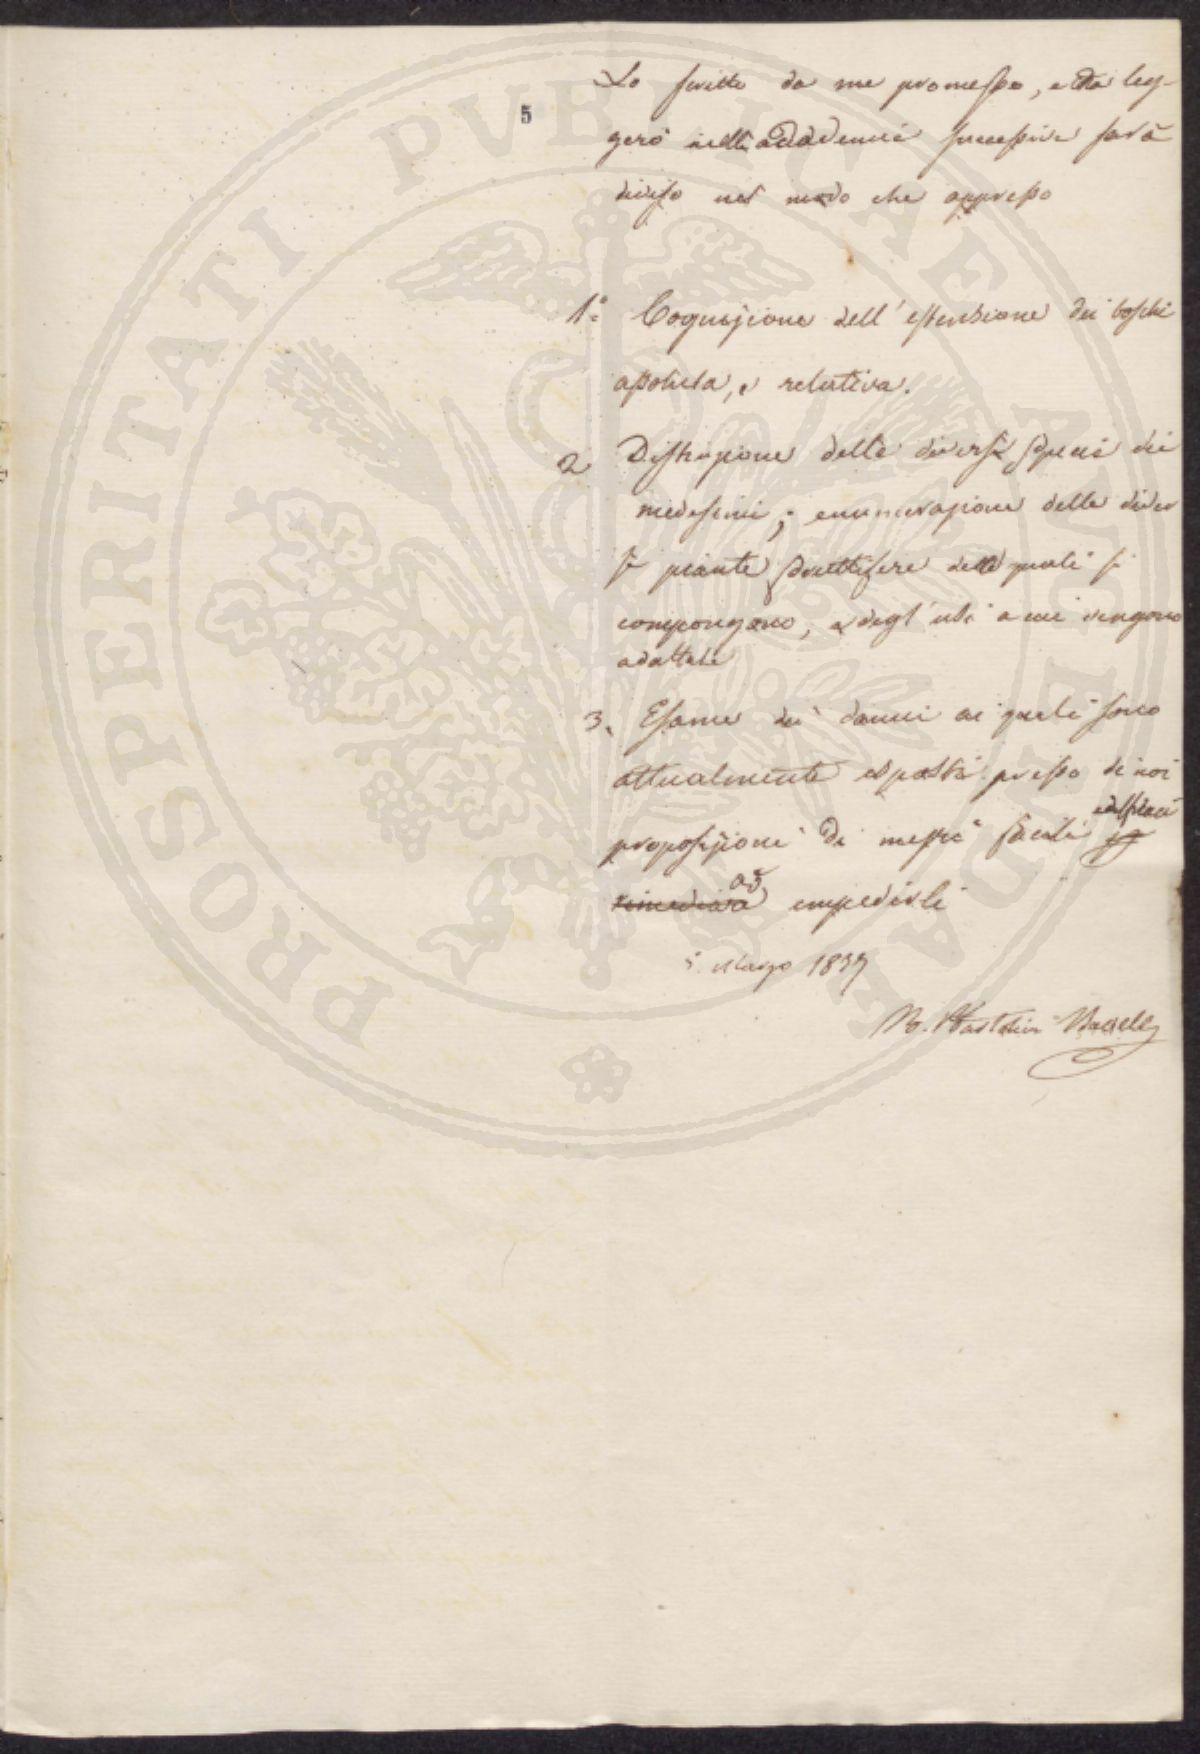 5
Lo scritto da me promesso, e che leg-
gerò nelle accademie successive sarà
diviso nel modo che appresso
1.° Cognizione dell'estensione dei boschi
assoluta, e relativa.
2 Distinzione delle diverse specie dei
medesimi; enumerazione delle diver
se piante fruttifere delle quali si
compongono, e degl'usi a cui vengono
adattate
3. Esame dei danni ai quali sono
attualmente esposti presso di noi
proposizioni di mezzi facili ed efficaci
rimediare ad impedirli
5. Marzo 1837
PROSPERITATI PVBLICAE AVGENDAE